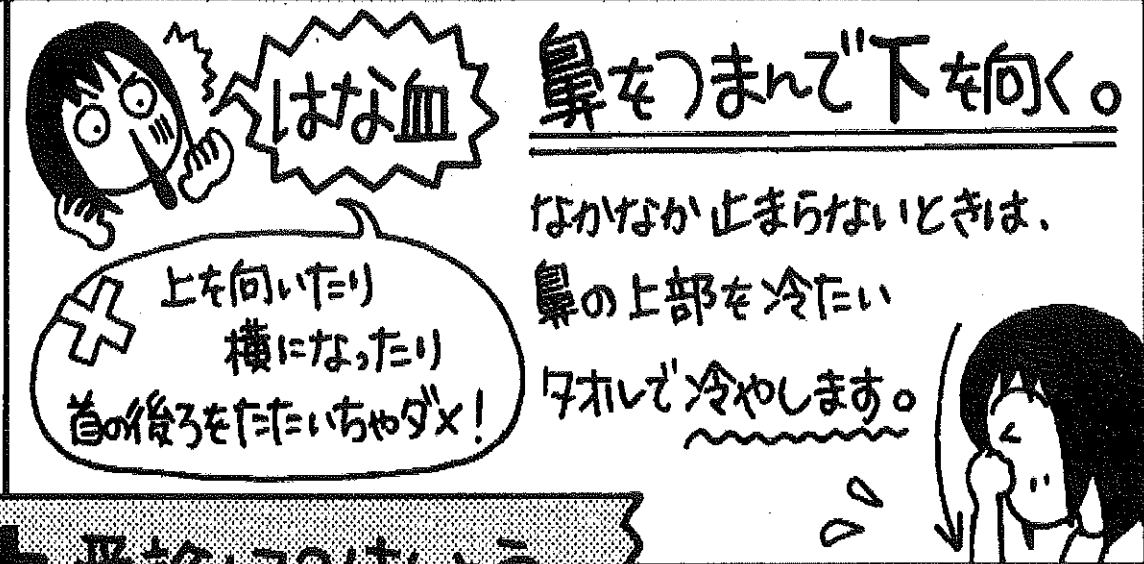 はな血
鼻をつまんで下を向く。
なかなか止まらないときは、
鼻の上部を冷たい
タオルで冷やします。
上を向いたり
横になったり
首の後ろをたたいちゃダメ!